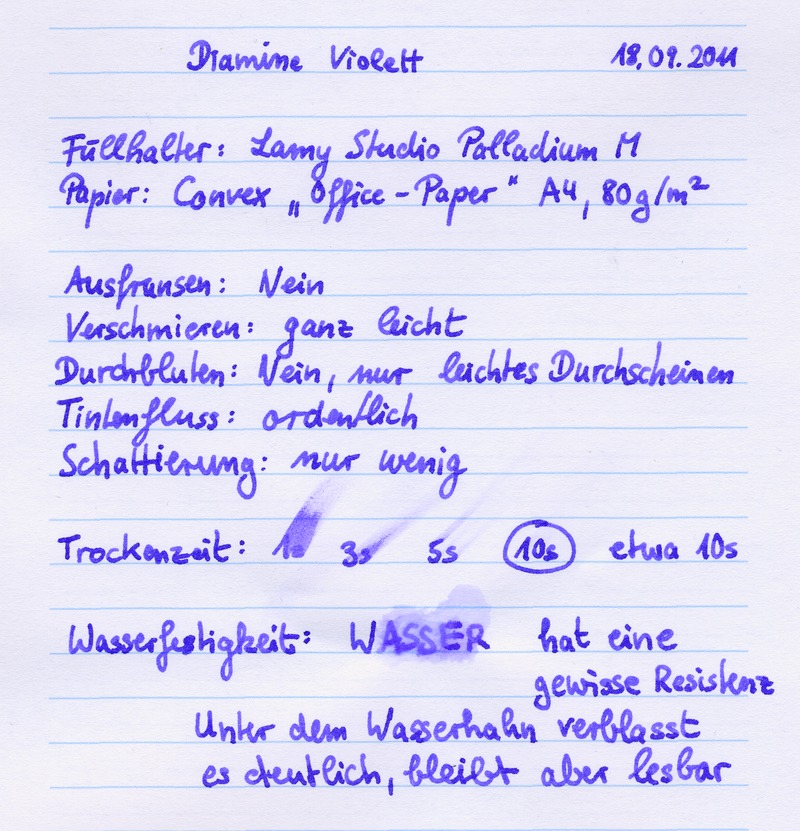 Diamine Violett 18.09.2011
Füllhalter: Lamy Studio Palladium M
Papier: Convex „Office-Paper“ A4, 80g/m²
Ausfransen: Nein
Verschmieren: ganz leicht
Durchbluten: Nein, nur leichtes Durchscheinen
Tintenfluss: ordentlich
Schattierung: nur wenig
Trockenzeit: 1s 3s 5s 10s etwa 10s
Wasserfestigkeit: WASSER hat eine
gewisse Resistenz
Unter dem Wasserhahn verblasst
es deutlich, bleibt aber lesbar